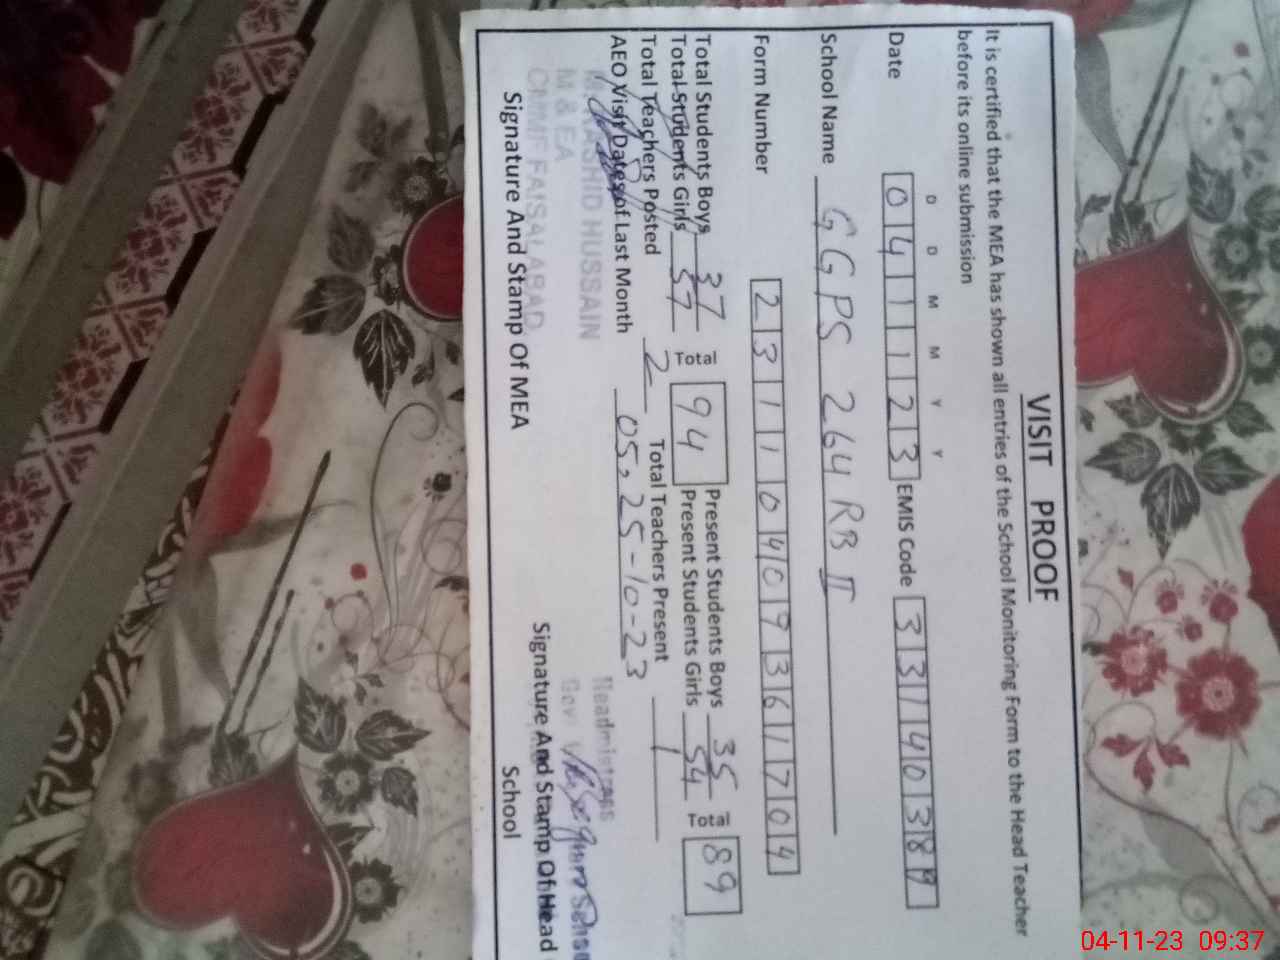 VISIT PROOF
It is certified that the MEA has shown all entries of the School Monitoring Form to the Head Teacher
before its online submission
D D M M Y Y
Date 041123 EMIS Code 33140389
School Name GGPS 264 RB II
Form Number 231110409361704
Total Students Boys 37 Total 94 Present Students Boys 35 Total 89
Total Students Girls 57 Present Students Girls 54
Total Teachers Posted 2 Total Teachers Present 1
AEO Visit Dates of Last Month 05, 25-10-23
RASHID HUSSAIN
M & EA
CMMF FAISALABAD
Headmistress
Signature And Stamp Of MEA
Signature And Stamp Of Head
School
04-11-23 09:37